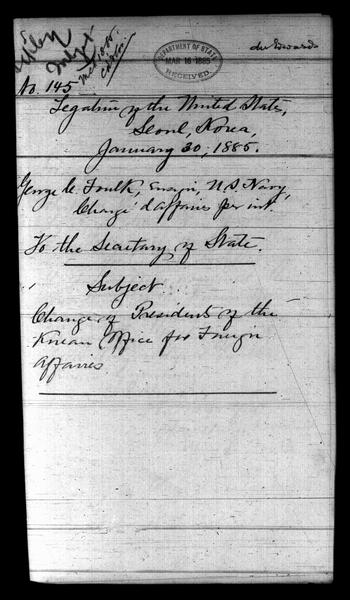 DEPARTMENT OF STATE
MAR 16 1885
RECEIVED
No. 145
Legation of the United States,
Seoul, Korea,
January 30, 1885.
George C. Foulk, Ensign, U.S. Navy,
Chargé d'affaires per int.
To the Secretary of State.
Subject
Change of Presidents of the
Korean Office for Foreign
Affairs